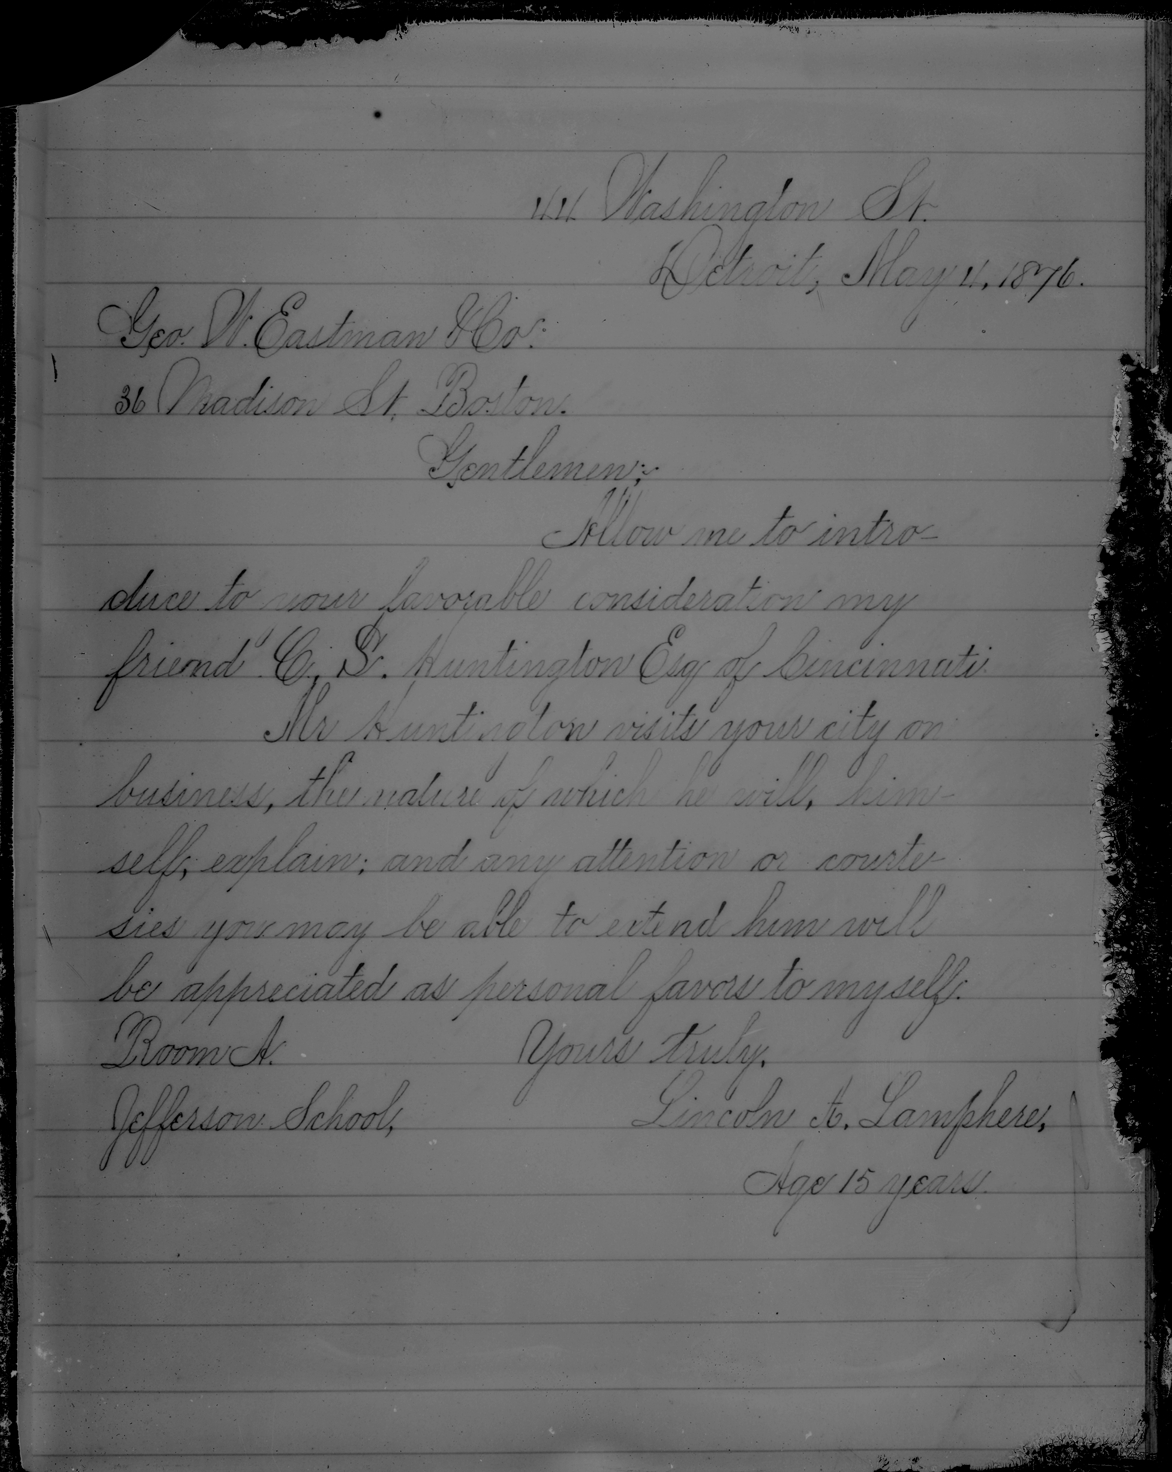 44 Washington St.
Detroit, May 4, 1876.
Geo. W. Eastman & Co.
36 Madison St. Boston.
Gentlemen;
Allow me to intro-
duce to your favorable consideration my
friend C. S. Huntington Esq of Cincinnati.
Mr Huntington visits your city on
business, the nature of which he will, him-
self, explain; and any attention or courte-
sies you may be able to extend him will
be appreciated as personal favors to myself.
Room A. Yours truly,
Jefferson School, Lincoln A. Lamphere,
Age 15 years.